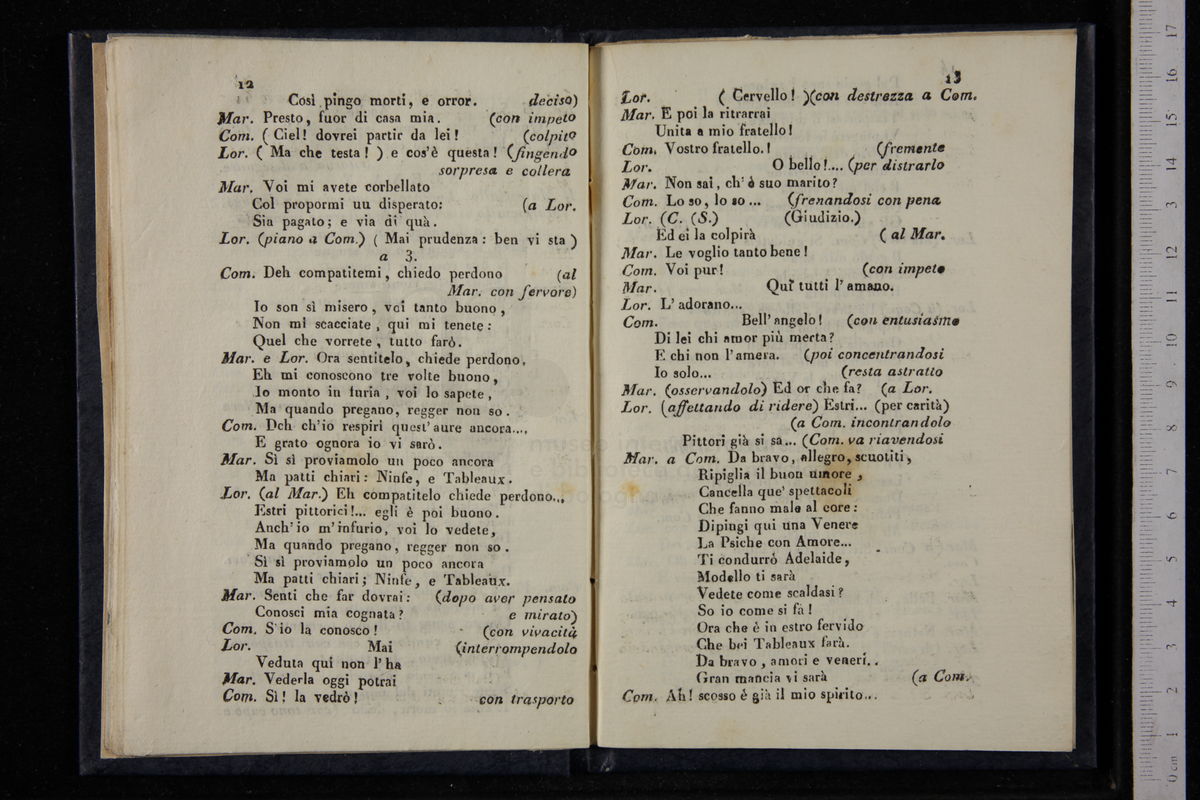 12
Così pingo morti, e orror. deciso)
Mar. Presto, fuor di casa mia. (con impeto
Com. ( Ciel! dovrei partir da lei! (colpito
Lor. ( Ma che testa! ) e cos'è questa! (fingendo
sorpresa e collera
Mar. Voi mi avete corbellato
Col propormi uu disperato: (a Lor.
Sia pagato; e via di quà.
Lor. (piano a Com.) ( Mai prudenza: ben vi sta )
a 3.
Com. Deh compatitemi, chiedo perdono (al
Mar. con fervore)
Io son sì misero, voi tanto buono,
Non mi scacciate, qui mi tenete:
Quel che vorrete, tutto farò.
Mar. e Lor. Ora sentitelo, chiede perdono,
Eh mi conoscono tre volte buono,
Io monto in furia, voi lo sapete,
Ma quando pregano, regger non so.
Com. Deh ch'io respiri quest'aure ancora...,
E grato ognora io vi sarò.
Mar. Sì sì proviamolo un poco ancora
Ma patti chiari: Ninfe, e Tableaux.
Lor. (al Mar.) Eh compatitelo chiede perdono...
Estri pittorici!... egli è poi buono.
Anch'io m'infurio, voi lo vedete,
Ma quando pregano, regger non so.
Sì sì proviamolo un poco ancora
Ma patti chiari; Ninfe, e Tableaux.
Mar. Senti che far dovrai: (dopo aver pensato
Conosci mia cognata? e mirato)
Com. S'io la conosco! (con vivacità
Lor. Mai (interrompendolo
Veduta qui non l'ha
Mar. Vederla oggi potrai
Com. Sì! la vedrò! con trasporto
13
Lor. ( Cervello! )(con destrezza a Com.
Mar. E poi la ritrarrai
Unita a mio fratello!
Com. Vostro fratello.! (fremente
Lor. O bello!.... (per distrarlo
Mar. Non sai, ch'è suo marito?
Com. Lo so, lo so... (frenandosi con pena
Lor. (C. (S.) (Giudizio.)
Ed ei la colpirà ( al Mar.
Mar. Le voglio tanto bene!
Com. Voi pur! (con impeto
Mar. Qui tutti l'amano.
Lor. L'adorano...
Com. Bell'angelo! (con entusiasmo
Di lei chi amor più merta?
E chi non l'amera. (poi concentrandosi
Io solo... (resta astratto
Mar. (osservandolo) Ed or che fa? (a Lor.
Lor. (affettando di ridere) Estri... (per carità)
(a Com. incontrandolo
Pittori già si sa... (Com. va riavendosi
Mar. a Com. Da bravo, allegro, scuotiti,
Ripiglia il buon umore,
Cancella que' spettacoli
Che fanno male al core:
Dipingi qui una Venere
La Psiche con Amore...
Ti condurrò Adelaide,
Modello ti sarà
Vedete come scaldasi?
So io come si fà!
Ora che è in estro fervido
Che bei Tableaux farà.
Da bravo, amori e veneri..
Gran mancia vi sarà (a Com.
Com. Ah! scosso è già il mio spirito...